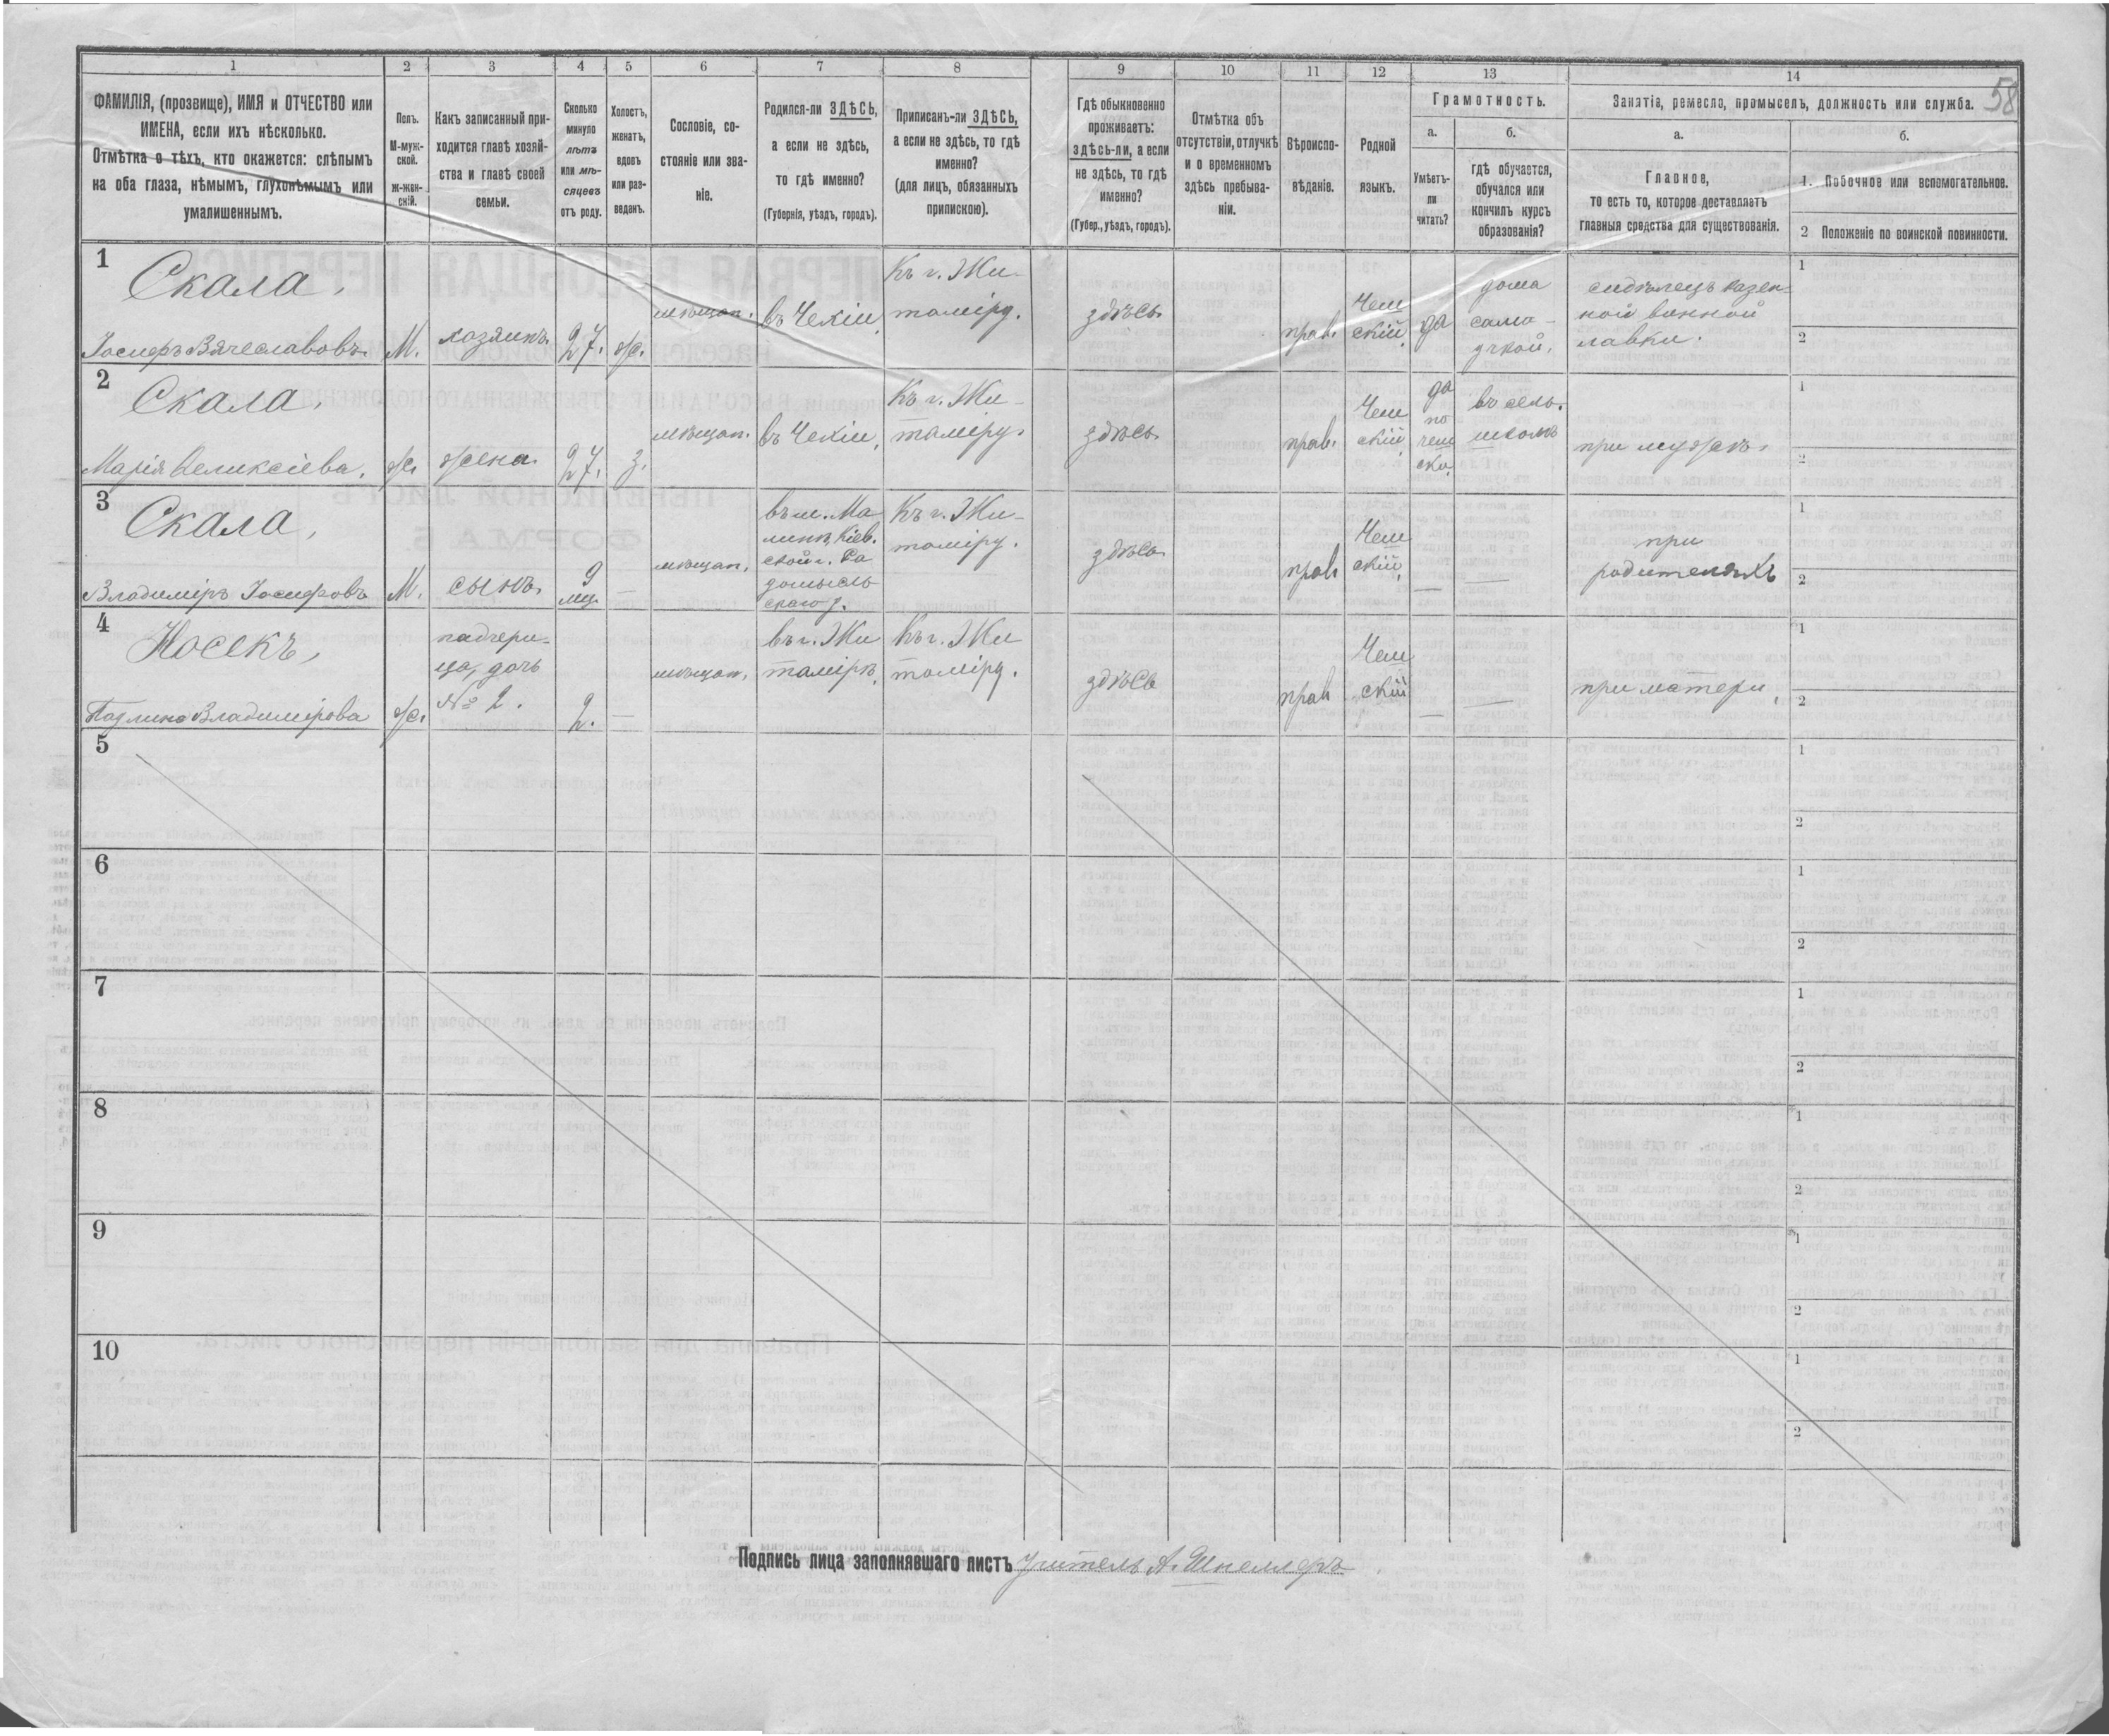 1 2 3 4 5 6 7 8 9 10 11 12 13 14
58
ФАМИЛІЯ, (прозвище), ИМЯ и ОТЧЕСТВО или
ИМЕНА, если ихъ нѣсколько.
Отмѣтка о тѣхъ, кто окажется: слѣпымъ
на оба глаза, нѣмымъ, глухонѣмымъ или
умалишеннымъ.
Полъ.
М-муж-
ской.
ж-жен-
скій.
Какъ записанный при-
ходится главѣ хозяй-
ства и главѣ своей
семьи.
Сколько
минуло
лѣтъ
или мѣ-
сяцевъ
отъ роду.
Холостъ,
женатъ,
вдовъ
или раз-
веденъ.
Сословіе, со-
стояніе или зва-
ніе.
Родился-ли ЗДѢСЬ,
а если не здѣсь,
то гдѣ именно?
(Губернія, уѣздъ, городъ).
Приписанъ-ли ЗДѢСЬ,
а если не здѣсь, то гдѣ
именно?
(для лицъ, обязанныхъ
припискою).
Гдѣ обыкновенно
проживаетъ:
здѣсь-ли, а если
не здѣсь, то гдѣ
именно?
(Губер., уѣздъ, городъ).
Отмѣтка объ
отсутствіи, отлучкѣ
и о временномъ
здѣсь пребыва-
ніи.
Вѣроиспо-
вѣданіе.
Родной
языкъ.
Грамотность.
а.
Умѣетъ-
ли
читать?
б.
гдѣ обучается,
обучался или
кончилъ курсъ
образованія?
Занятіе, ремесло, промыселъ, должность или служба.
а.
Главное,
то есть то, которое доставляетъ
главныя средства для существованія.
б.
1. Побочное или вспомогательное.
2 Положеніе по воинской повинности.
1
Скала,
Іосифъ Вячеславовъ
М.
хозяинъ
27.
ж.
мѣщан.
въ Чехіи,
Къ г. Жи-
томіру.
здѣсь
прав.
Чеш
скій,
да
дома
само-
учкой,
сидѣлецъ казен-
ной винной
лавки.
1
2
2
Скала,
Марія Алексіева,
ж.
жена
27.
з.
мѣщан.
въ Чехіи,
Къ г. Жи-
томіру.
здѣсь
прав.
Чеш
скій,
да
по
чеш
ски,
въ сель.
школѣ
при мужѣ.
1
2
3
Скала,
Владиміръ Іосифовъ
М.
сынъ.
9
мц.
—
мѣщан.
въ м. Ма
линѣ, Кіев.
ской г. Ра
домысль
скаго у.
Къ г. Жи-
томіру.
здѣсь
прав.
Чеш
скій,
—
—
при
родителяхъ
1
2
4
Носекъ,
Паулина Владимірова
ж.
падчери-
ца, дочь
№ 2.
2.
—
мѣщан.
въ г. Жи
томірѣ,
Къ г. Жи
томіру.
здѣсь
прав.
Чеш
скій
—
—
при матери,
1
2
5
1
2
6
1
2
7
1
2
8
1
2
9
1
2
10
1
2
Подпись лица заполнявшаго листъ учитель А. Шпеллеръ